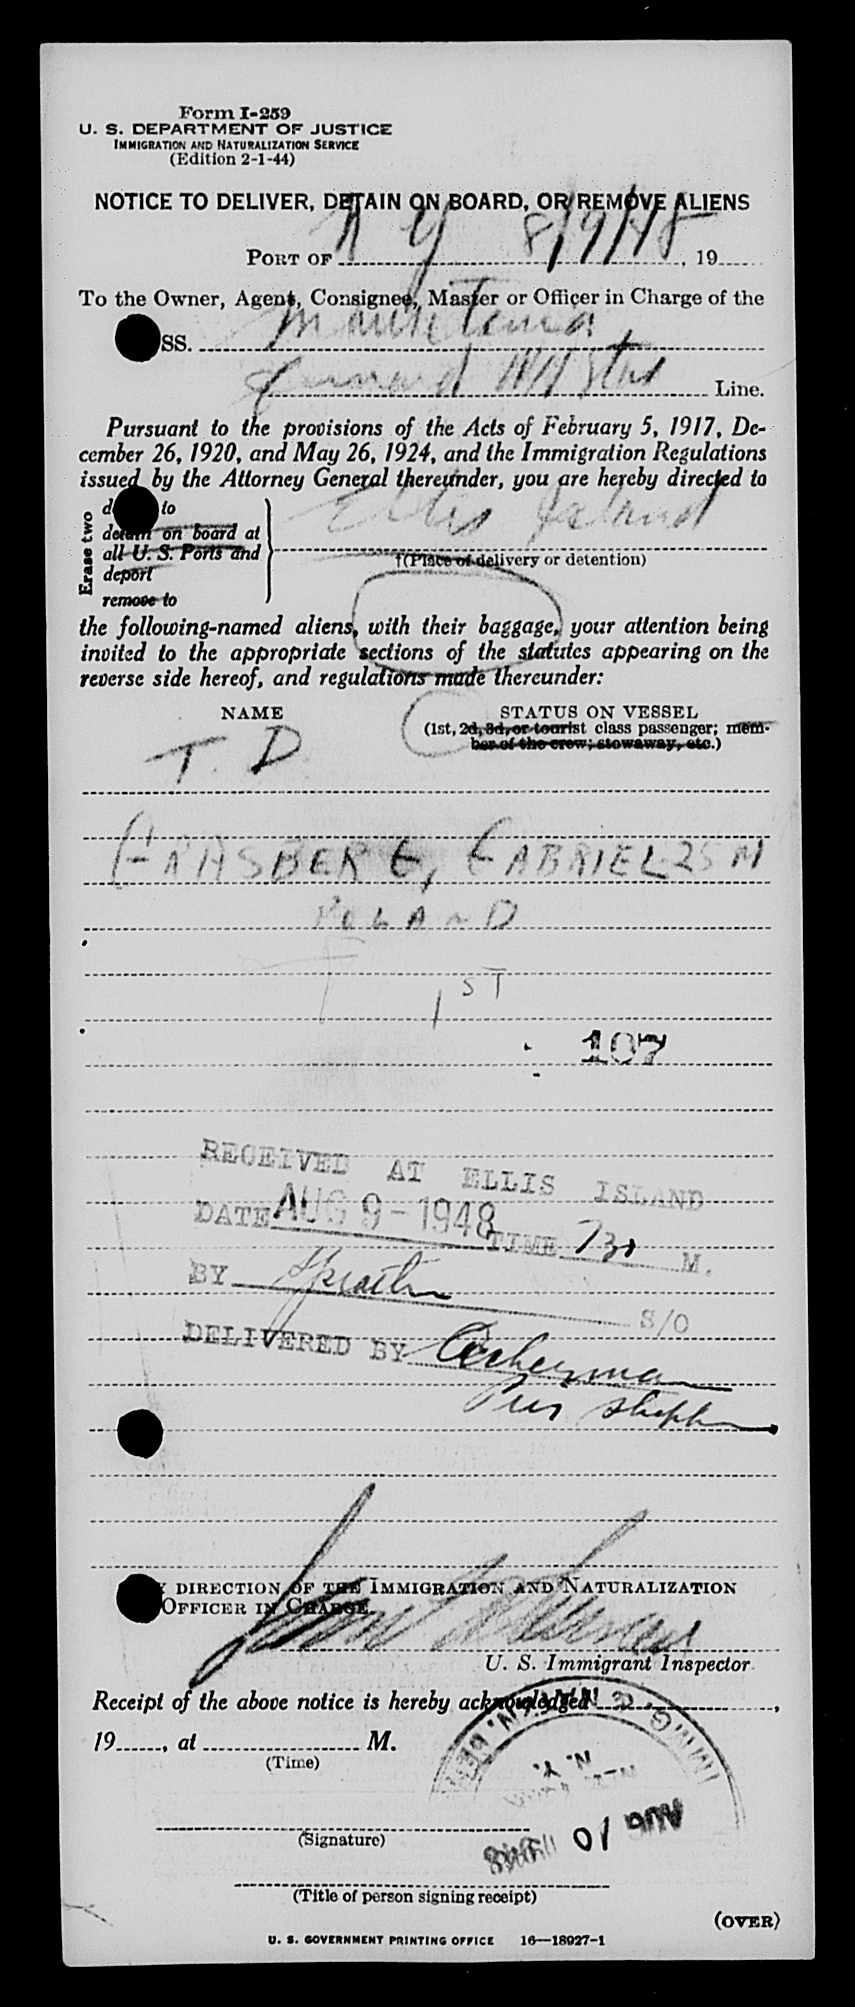 Form I-259
U. S. DEPARTMENT OF JUSTICE
IMMIGRATION AND NATURALIZATION SERVICE
(Edition 2-1-44)
NOTICE TO DELIVER, DETAIN ON BOARD, OR REMOVE ALIENS
PORT OF N Y 8/9/48, 19
To the Owner, Agent, Consignee, Master or Officer in Charge of the
SS. Mauretania
Cunard W Star Line.
Pursuant to the provisions of the Acts of February 5, 1917, De-
cember 26, 1920, and May 26, 1924, and the Immigration Regulations
issued by the Attorney General thereunder, you are hereby directed to
Erase two
to
detain on board at
all U. S. Ports and
deport
remove to
Ellis Island
†(Place of delivery or detention)
the following-named aliens, with their baggage, your attention being
invited to the appropriate sections of the statutes appearing on the
reverse side hereof, and regulations made thereunder:
NAME STATUS ON VESSEL
(1st, 2d, 3d, or tourist class passenger; mem-
ber of the crew; stowaway, etc.)
T. D
GABRIEL 25 M
POLAND
1 ST
107
RECEIVED AT ELLIS ISLAND
DATE AUG 9-1948 TIME 730 M.
BY S/O
DELIVERED BY
DIRECTION OF THE IMMIGRATION AND NATURALIZATION
OFFICER IN CHARGE.
U. S. Immigrant Inspector
Receipt of the above notice is hereby acknowledged,
19, at M.
(Time)
IMMIG. & NAT.
N. Y.
AUG 10 1948
(Signature)
(Title of person signing receipt)
(OVER)
U. S. GOVERNMENT PRINTING OFFICE 16—18927-1